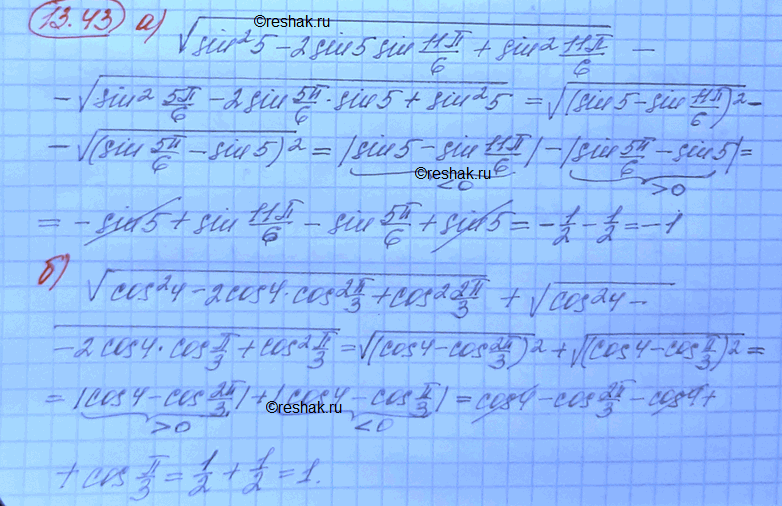 ©reshak.ru
13.43 а) √(sin²5 - 2sin5 sin 11π/6 + sin² 11π/6) -
- √(sin² 5π/6 - 2sin 5π/6 · sin5 + sin²5) = √((sin5 - sin 11π/6)²) -
- √((sin 5π/6 - sin5)²) = |sin5 - sin 11π/6| - |sin 5π/6 - sin5| =
<0 >0
©reshak.ru
= - sin5 + sin 11π/6 - sin 5π/6 + sin5 = - 1/2 - 1/2 = -1
б) √(cos²4 - 2cos4 · cos 2π/3 + cos² 2π/3) + √(cos²4 -
- 2cos4 · cos π/3 + cos² π/3) = √((cos4 - cos 2π/3)²) + √((cos4 - cos π/3)²) =
= |cos4 - cos 2π/3| + |cos4 - cos π/3| = cos4 - cos 2π/3 - cos4 +
>0 <0
©reshak.ru
+ cos π/3 = 1/2 + 1/2 = 1.